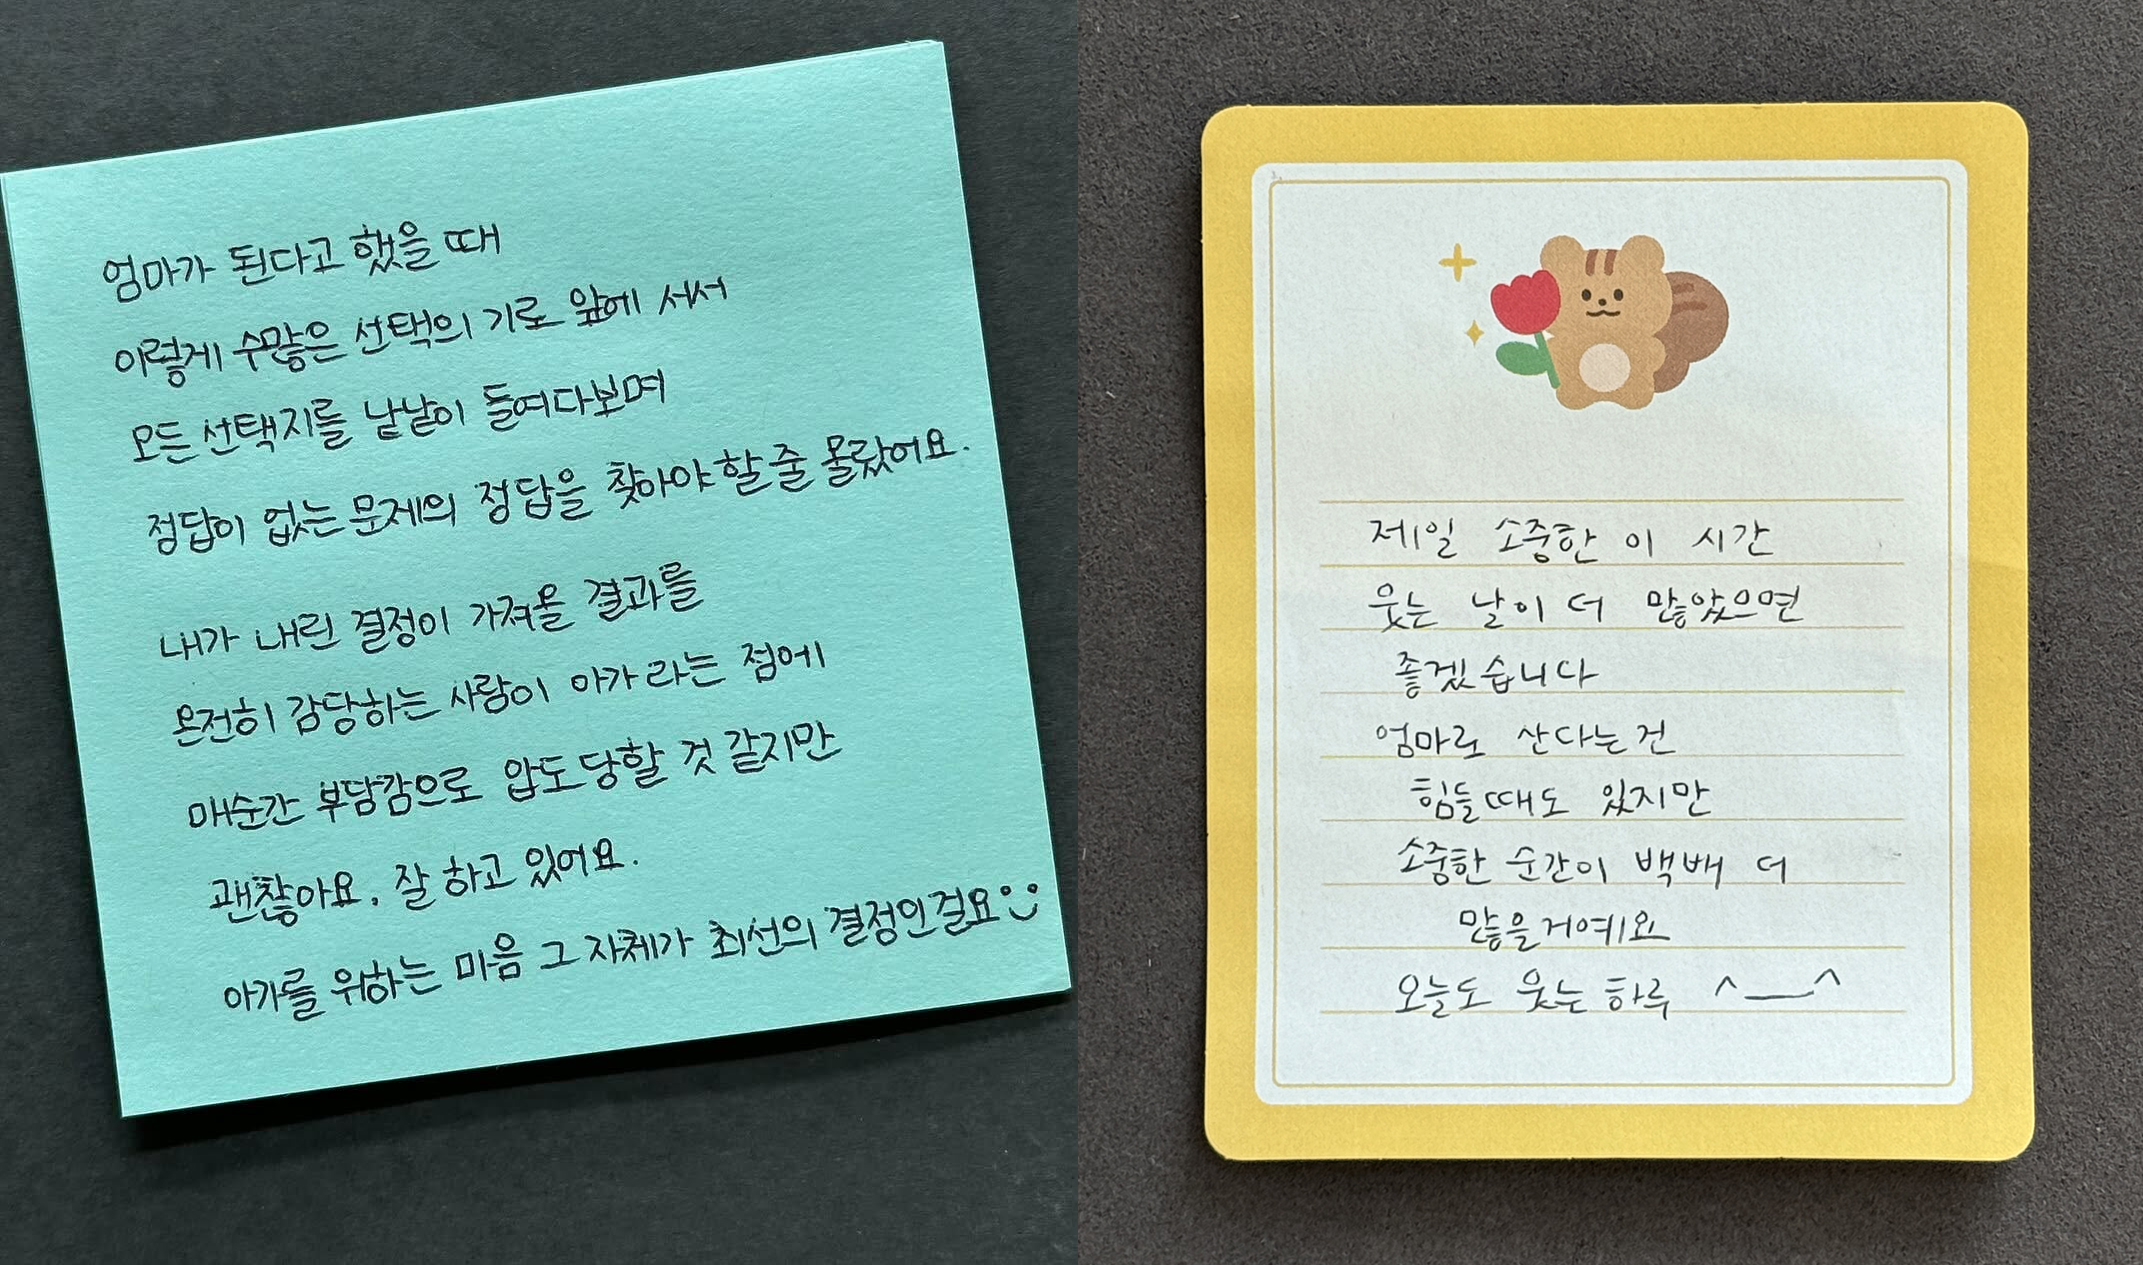 엄마가 된다고 했을 때
이렇게 수많은 선택의 기로 앞에 서서
모든 선택지를 낱낱이 들여다보며
정답이 없는 문제의 정답을 찾아야 할 줄 몰랐어요.
내가 내린 결정이 가져올 결과를
온전히 감당하는 사람이 아가라는 점에
매순간 부담감으로 압도당할 것 같지만
괜찮아요. 잘 하고 있어요.
아가를 위하는 마음 그 자체가 최선의 결정인걸요
제일 소중한 이 시간
웃는 날이 더 많았으면
좋겠습니다
엄마로 산다는건
힘들때도 있지만
소중한 순간이 백배 더
많을거예요
오늘도 웃는 하루 ^__^